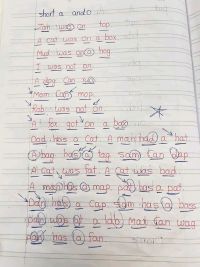 short a and o
Jan was on top
A cat was on a box
Mud was on a hog
I was not on
A dog can
Mom can mop
Bob was not on
A fox got on a box
Dad has a cat. A man had a hat
A hag has a bag sam can nap
A cat was fat. A cat was bad
A man has a map pat has a pat
Dan has a cap sam has a bass
pam was at a lab Max can wag
pan has a fan